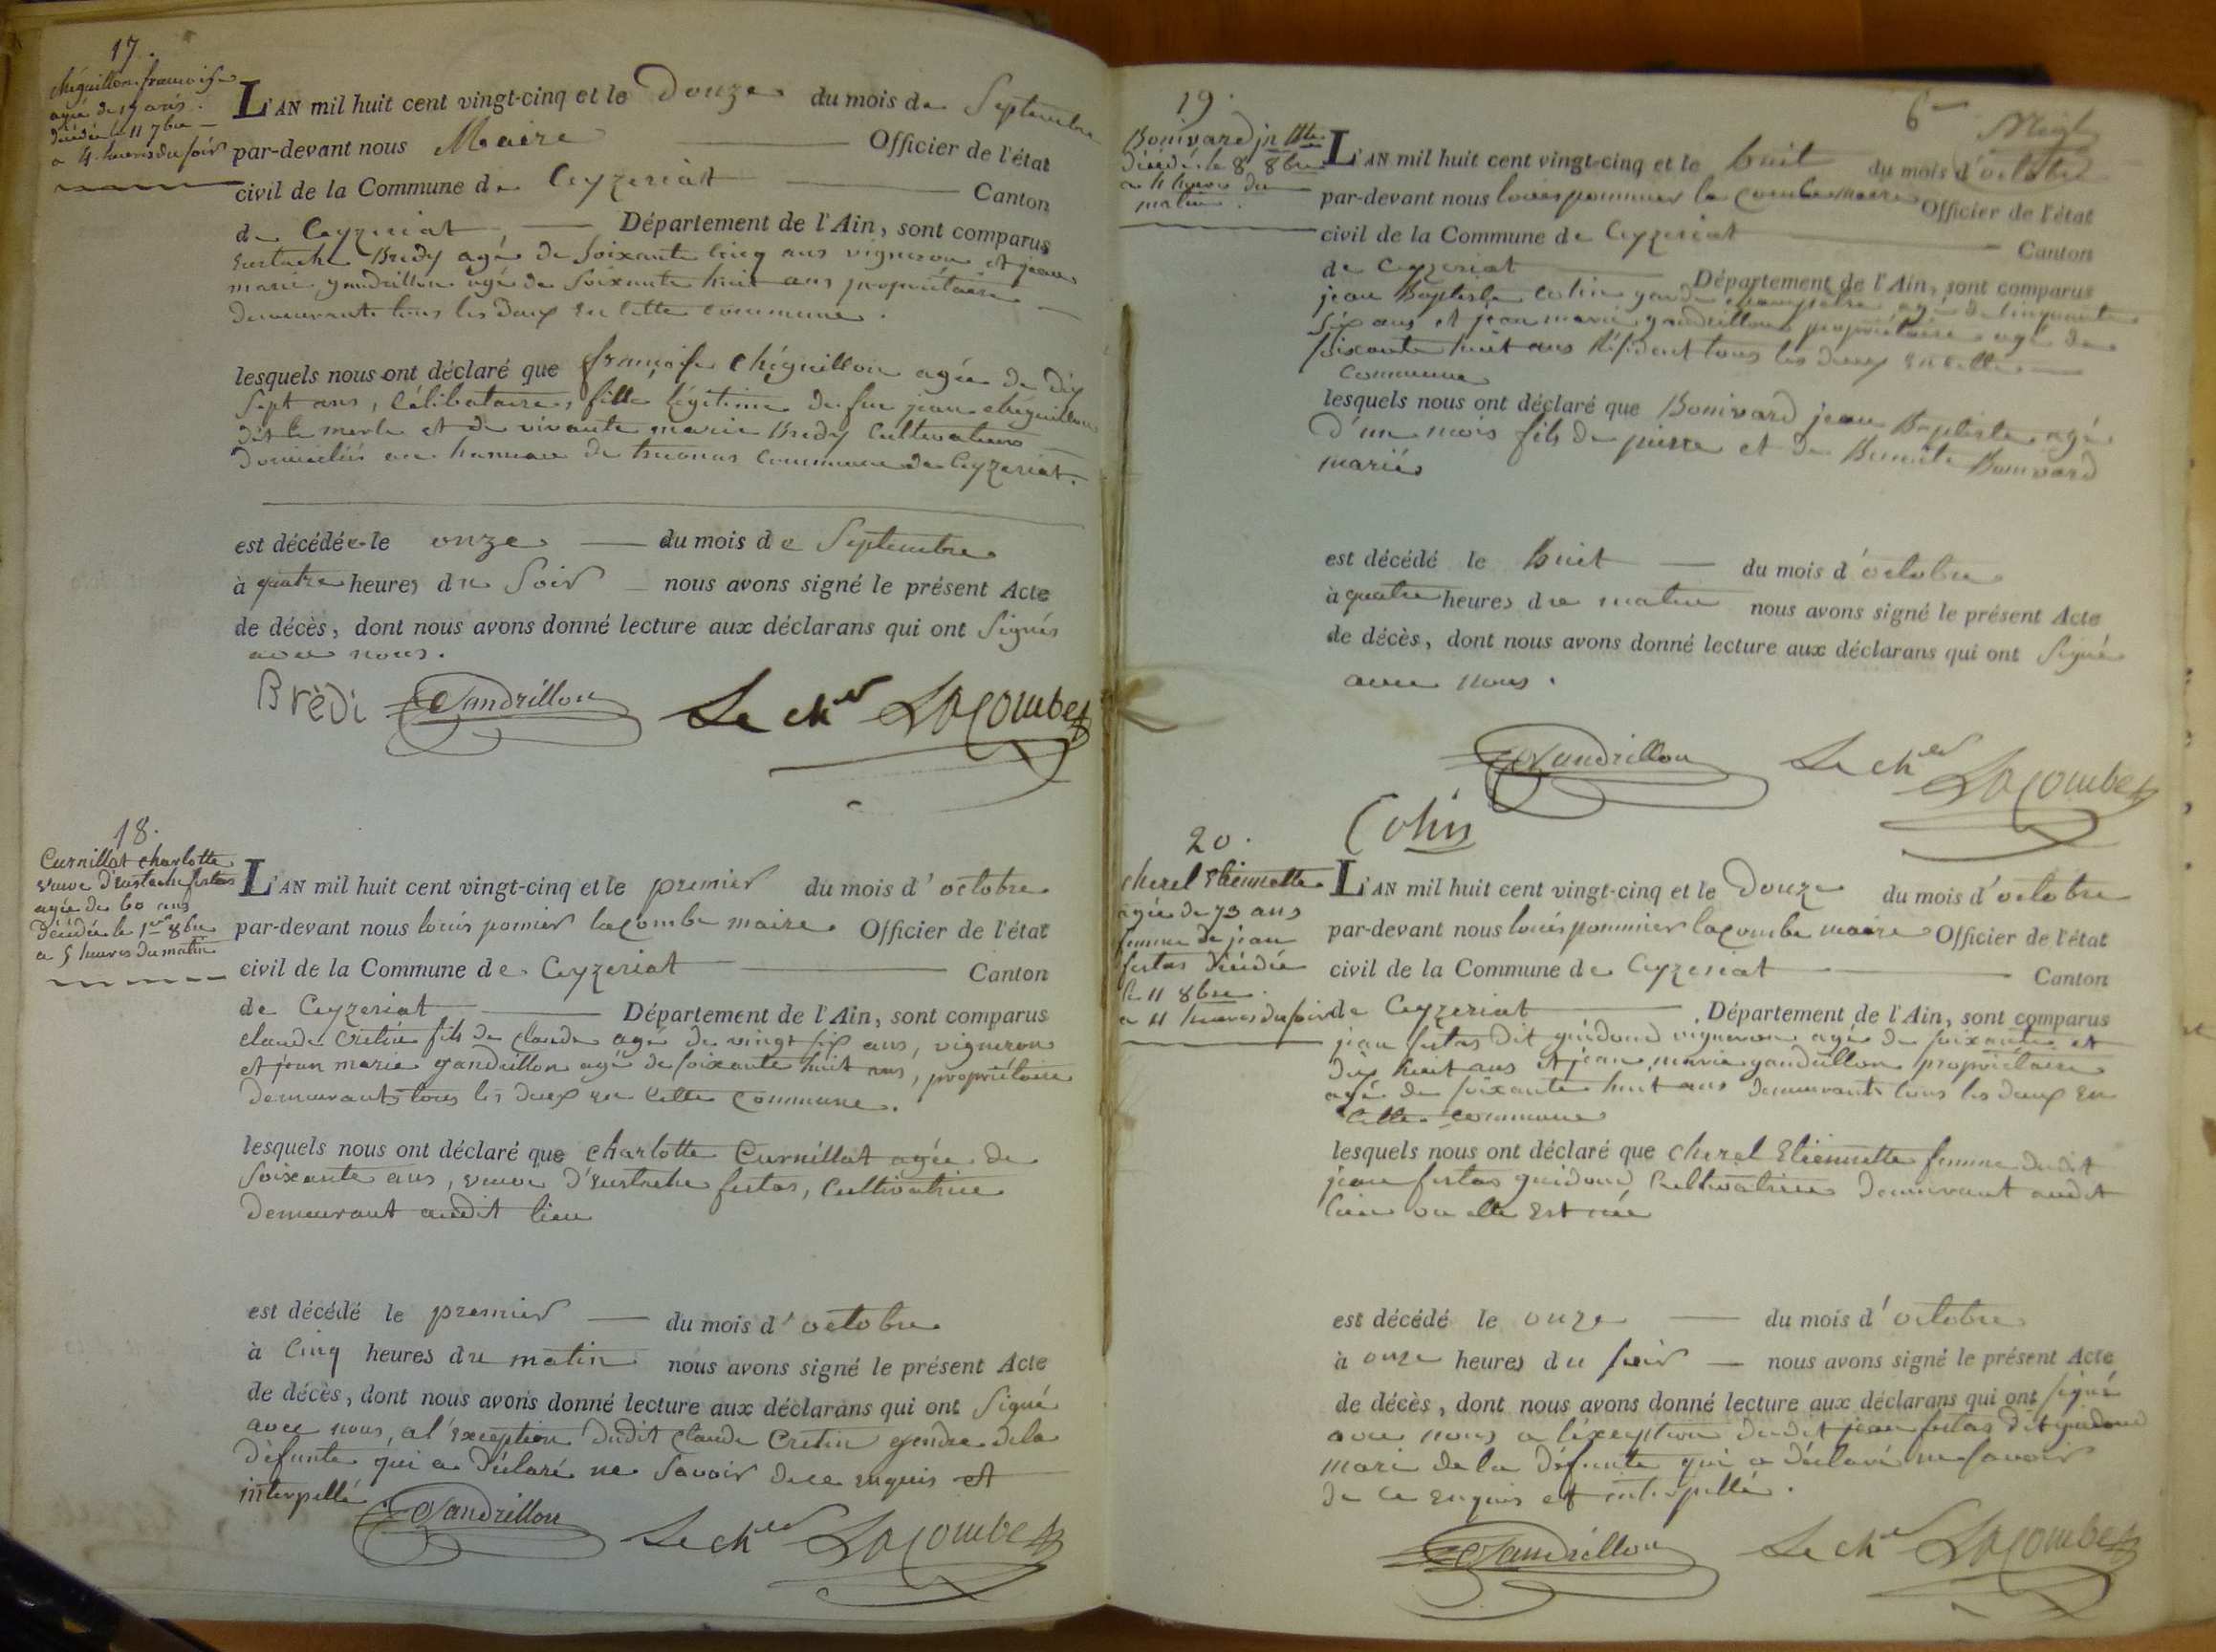 17.
chéguillon françoise
agée de 17 ans.
décédée le 11 7bre
a 4 heures du soir
L'AN mil huit cent vingt-cinq et le Douze du mois de Septembre
par-devant nous Maire Officier de l'état
civil de la Commune de Ceyzeriat Canton
de Ceyzeriat Département de l'Ain, sont comparus
Eustache Bredy agé de Soixante cinq ans vigneron et jean
marie gandrillon agé de Soixante huit ans propriétaire
demeurants tous les deux en cette commune.
lesquels nous ont déclaré que françoise chéguillon agée de dix
Sept ans, Célibataire, fille légitime de feu jean chéguillon
dit le merle et de vivante marie Bredy Cultivateurs
domiciliés au hameau de commune de Ceyzeriat.
est décédée le onze du mois de Septembre
à quatre heures du Soir nous avons signé le présent Acte
de décès, dont nous avons donné lecture aux déclarans qui ont Signés
avec nous.
Brèdi Gandrillon Le cher LACOMBE
18.
Curnillat charlotte
veuve d'Eustache festas
agée de 60 ans
décédée le 1er 8bre
a 5 heures du matin
L'AN mil huit cent vingt-cinq et le premier du mois d'octobre
par-devant nous louis pomier lacombe maire Officier de l'état
civil de la Commune de Ceyzeriat Canton
de Ceyzeriat Département de l'Ain, sont comparus
claude Cretin fils de claude agé de vingt six ans, vigneron
et jean marie gandrillon agé de soixante huit ans, propriétaire
demeurants tous les deux en cette commune.
lesquels nous ont déclaré que charlotte Curnillat agée de
Soixante ans, veuve d'Eustache festas, Cultivatrice
demeurant audit lieu
est décédé le premier du mois d'octobre
à Cinq heures du matin nous avons signé le présent Acte
de décès, dont nous avons donné lecture aux déclarans qui ont Signé
avec nous, a l'exception dudit claude Cretin gendre de la
défunte qui a déclaré ne Savoir de ce enquis et
interpellé
Gandrillon Le cher LACOMBE
6
19.
Bonivard jn Bte
décédé le 8 8bre
a 4 heures du
matin.
L'AN mil huit cent vingt-cinq et le huit du mois d'octobre
par-devant nous louis pommier la combe maire Officier de l'état
civil de la Commune de Ceyzeriat Canton
de Ceyzeriat Département de l'Ain, sont comparus
jean Baptiste Colin garde champêtre agé de cinquante
six ans et jean marie gandrillon propriétaire agé de
soixante huit ans Résident tous les deux en cette
commune
lesquels nous ont déclaré que Bonivard jean Baptiste agé
d'un mois fils de pierre et de Benoite Bonivard
mariés
est décédé le huit du mois d'octobre
à quatre heures du matin nous avons signé le présent Acte
de décès, dont nous avons donné lecture aux déclarans qui ont Signé
avec nous.
Gandrillon Le cher LACOMBE
Colin
20.
cherel Etiennette
agée de 73 ans
femme de jean
festas décédée
le 11 8bre.
a 11 heures du soir
L'AN mil huit cent vingt-cinq et le Douze du mois d'octobre
par-devant nous louis pommier lacombe maire Officier de l'état
civil de la Commune de Ceyzeriat Canton
de Ceyzeriat Département de l'Ain, sont comparus
jean festas dit guidond vigneron agé de soixante et
dix huit ans et jean marie gandrillon propriétaire
agé de soixante huit ans demeurants tous les deux en
cette commune
lesquels nous ont déclaré que cherel Etiennette femme dudit
jean festas guidond, Cultivatrice demeurant audit
lieu ou elle est née
est décédé le onze du mois d'octobre
à onze heures du soir nous avons signé le présent Acte
de décès, dont nous avons donné lecture aux déclarans qui ont signé
avec nous a l'exception dudit jean festas dit guidond
mari de la défunte qui a déclaré ne savoir
de ce enquis et interpellé.
Gandrillon Le cher LACOMBE